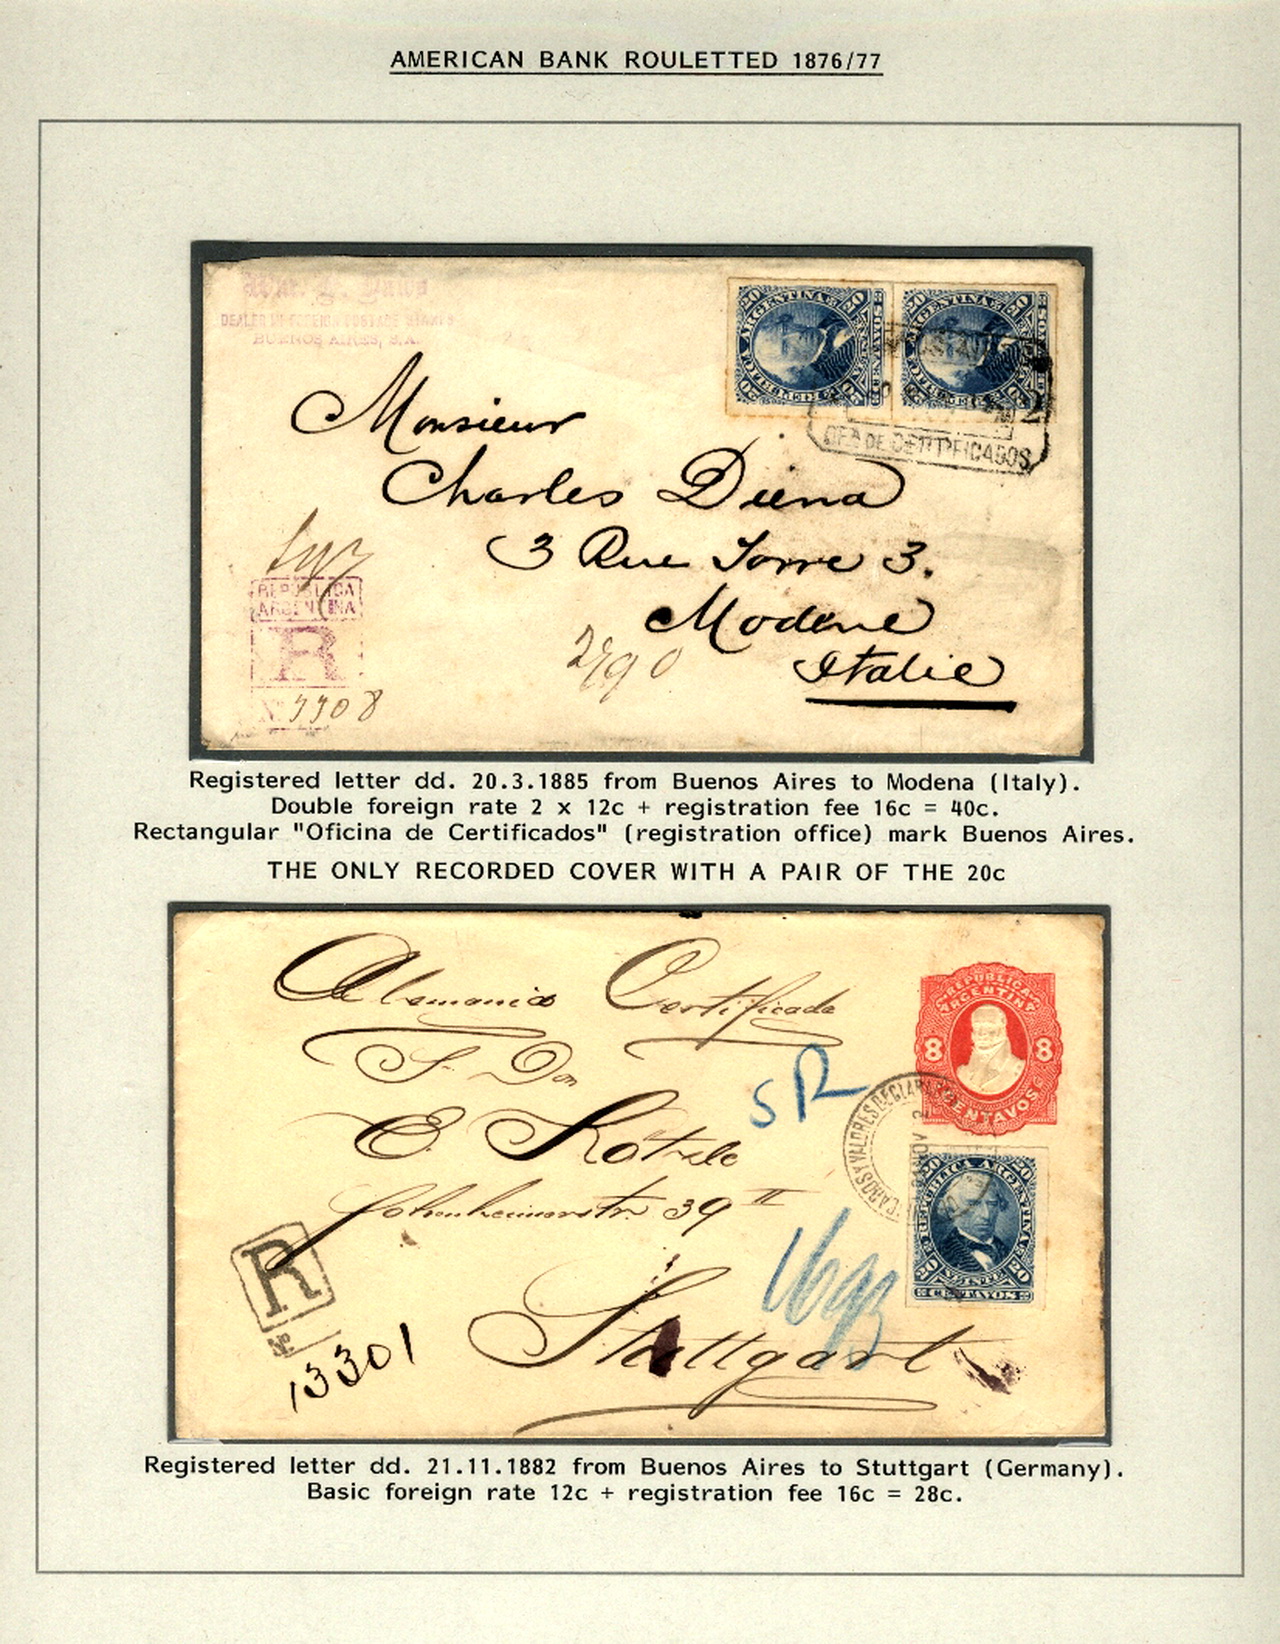 AMERICAN BANK ROULETTED 1876/77
DEALER IN FOREIGN POSTAGE STAMPS
BUENOS AIRES, S.A.
20 20
REPUBLICA ARGENTINA
20 20
REPUBLICA ARGENTINA
OFNA DE CERTIFICADOS
Monsieur
Charles Diena
3 Rue Torre 3.
Modene
Italie
REPUBLICA
ARGENTINA
R
No 3308
2890
Registered letter dd. 20.3.1885 from Buenos Aires to Modena (Italy).
Double foreign rate 2 x 12c + registration fee 16c = 40c.
Rectangular "Oficina de Certificados" (registration office) mark Buenos Aires.
THE ONLY RECORDED COVER WITH A PAIR OF THE 20c
Alemania Certificada
S. Don
E. Kötzle
Hohenheimerstr. 39 II
Stuttgart
SR
REPUBLICA
ARGENTINA
8 8
CENTAVOS
20 20
REPUBLICA ARGENTINA
20 VEINTE 20
CENTAVOS
R
No
13301
Registered letter dd. 21.11.1882 from Buenos Aires to Stuttgart (Germany).
Basic foreign rate 12c + registration fee 16c = 28c.